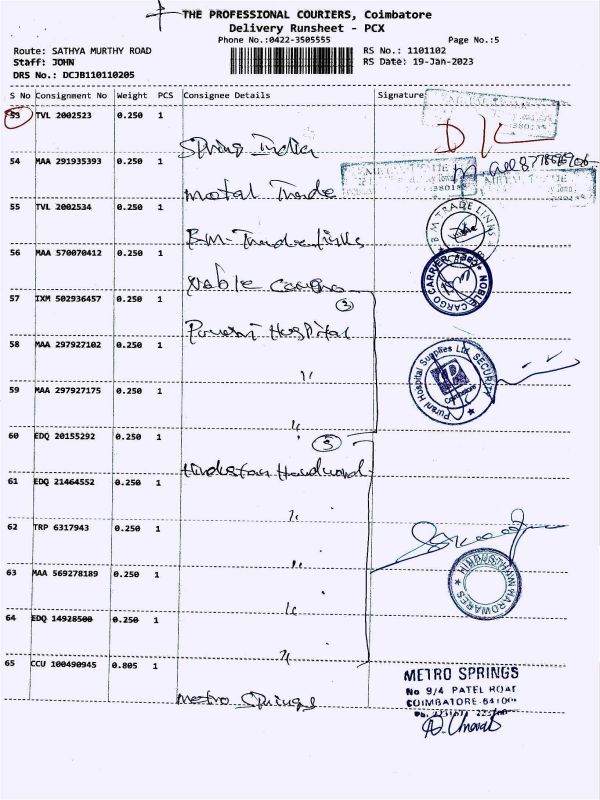 THE PROFESSIONAL COURIERS, Coimbatore
Delivery Runsheet - PCX
Phone No.:0422-3505555
Page No.:5
Route: SATHYA MURTHY ROAD
Staff: JOHN
DRS No.: DCJB110110205
RS No.: 1101102
RS Date: 19-Jan-2023
S No Consignment No Weight PCS Consignee Details Signature
53 TVL 2002523 0.250 1
Spring India
DK
54 MAA 291935393 0.250 1
Metal Trade
55 TVL 2002534 0.250 1
B.M. Trade links
B M TRADE LINKS
56 MAA 570070412 0.250 1
Noble Cargo
NOBLE CARGO CARRIER
57 IXM 502936457 0.250 1
3
Purani Hospital
58 MAA 297927102 0.250 1
"
Purani Hospital Supplies Ltd. SECURITY
Coimbatore
59 MAA 297927175 0.250 1
"
60 EDQ 20155292 0.250 1
5
Hindustan Hardward
61 EDQ 21464552 0.250 1
"
62 TRP 6317943 0.250 1
"
63 MAA 569278189 0.250 1
"
HINDUSTHAN HARDWARES
64 EDQ 14928500 0.250 1
"
65 CCU 100490945 0.805 1
Metro Springs
METRO SPRINGS
No 9/4 PATEL ROAD
COIMBATORE